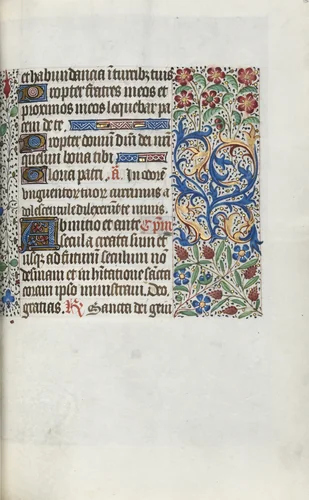 et habundancia in turribz tuis
Propter fratres meos et
proximos meos loquebar pa
cem de te
Propter domū dñi dei nr̄i
quesiui bona tibi
Gloria patri a In odorē
vngentor tuor currimus a
dolescentule dilexerūt te nimis
Ab initio et ante Cp̄m
secula creata sum et
usq ad futurū seculum nō
desinam et in hītatione sācta
coram ipso ministraui Deo
gratias Sancta dei geni